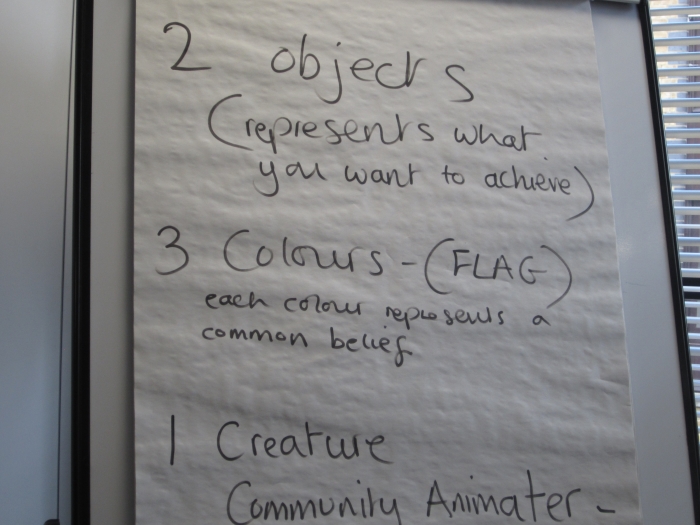 2 objects
(represents what
you want to achieve)
3 Colours - (FLAG)
each colour represents a
common belief
1 Creature
Community Animater -